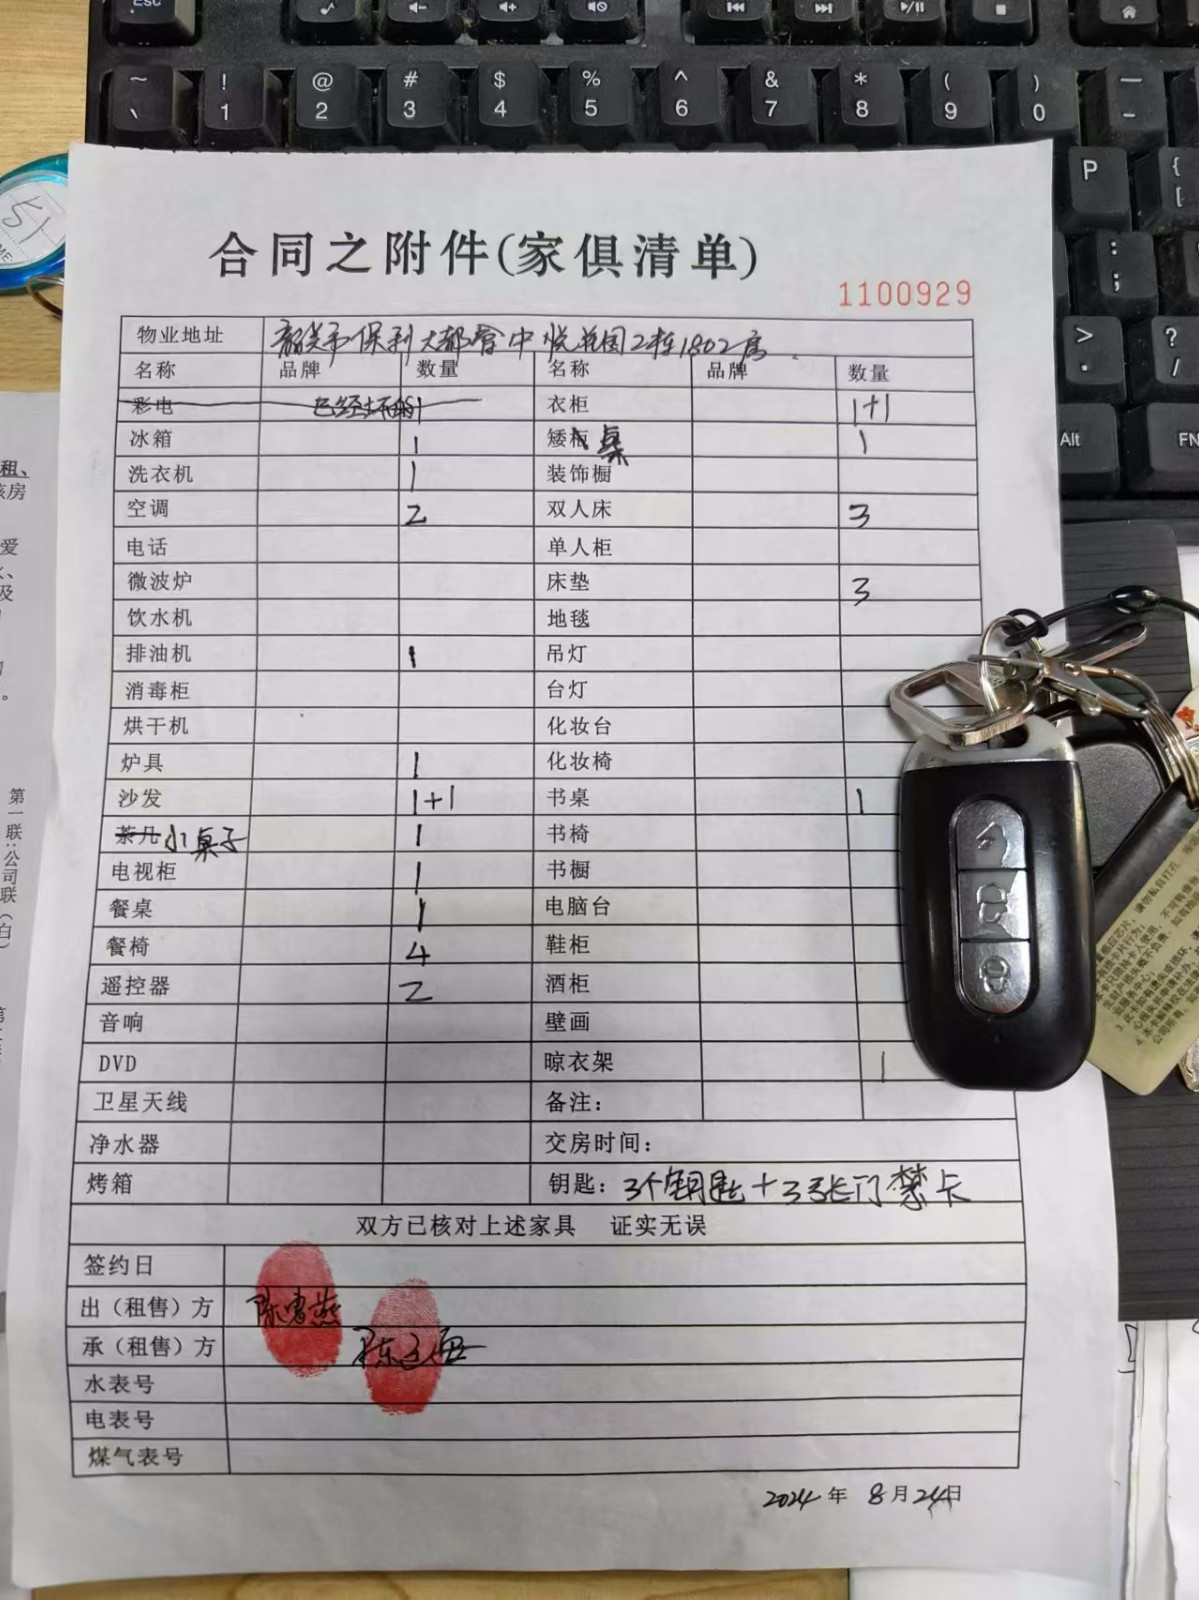 Esc
~ ! @ # $ % ^ & * ( ) —
、 1 2 3 4 5 6 7 8 9 0 -
P { [
: ;
> .
? /
Alt FN
51
合同之附件(家俱清单)
1100929
物业地址 韶关市保利大都会中悦花园2栋1802房
名称 品牌 数量 名称 品牌 数量
彩电 已经坏的 1 衣柜 1+1
冰箱 1 矮桌 1
洗衣机 1 装饰橱
空调 2 双人床 3
电话 单人柜
微波炉 床垫 3
饮水机 地毯
排油机 1 吊灯
消毒柜 台灯
烘干机 化妆台
炉具 1 化妆椅
沙发 1+1 书桌 1
茶几 小桌子 1 书椅
电视柜 1 书橱
餐桌 1 电脑台
餐椅 4 鞋柜
遥控器 2 酒柜
音响 壁画
DVD 晾衣架 1
卫星天线 备注：
净水器 交房时间：
烤箱 钥匙：3个钥匙+3张门禁卡
双方已核对上述家具 证实无误
签约日
出（租售）方 陈惠燕
承（租售）方
水表号
电表号
煤气表号
2024年 8月24日
第一联:公司联(白)